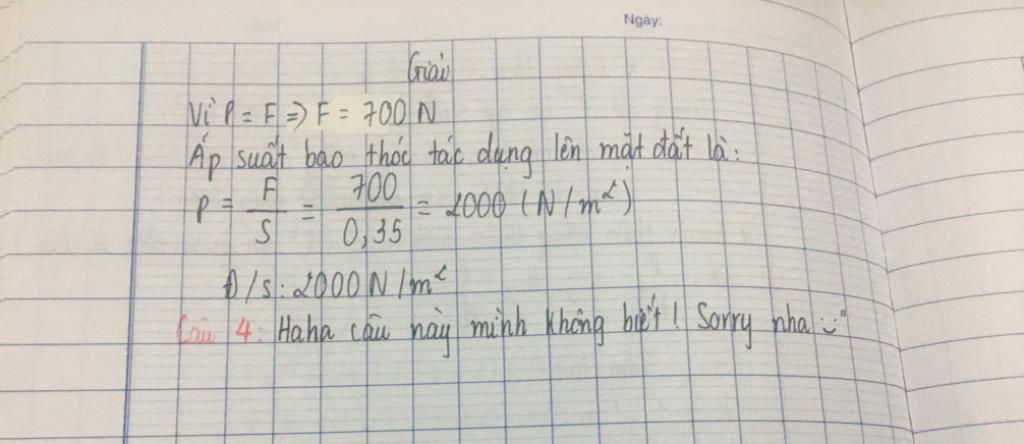 Ngày:
Giải
Vì P = F => F = 700 N
Áp suất bao thóc tác dụng lên mặt đất là:
P = F/S = 700/0,35 = 2000 (N/m²)
Đ/s: 2000 N/m²
Câu 4: Haha câu này mình không biết! Sorry nha :)"